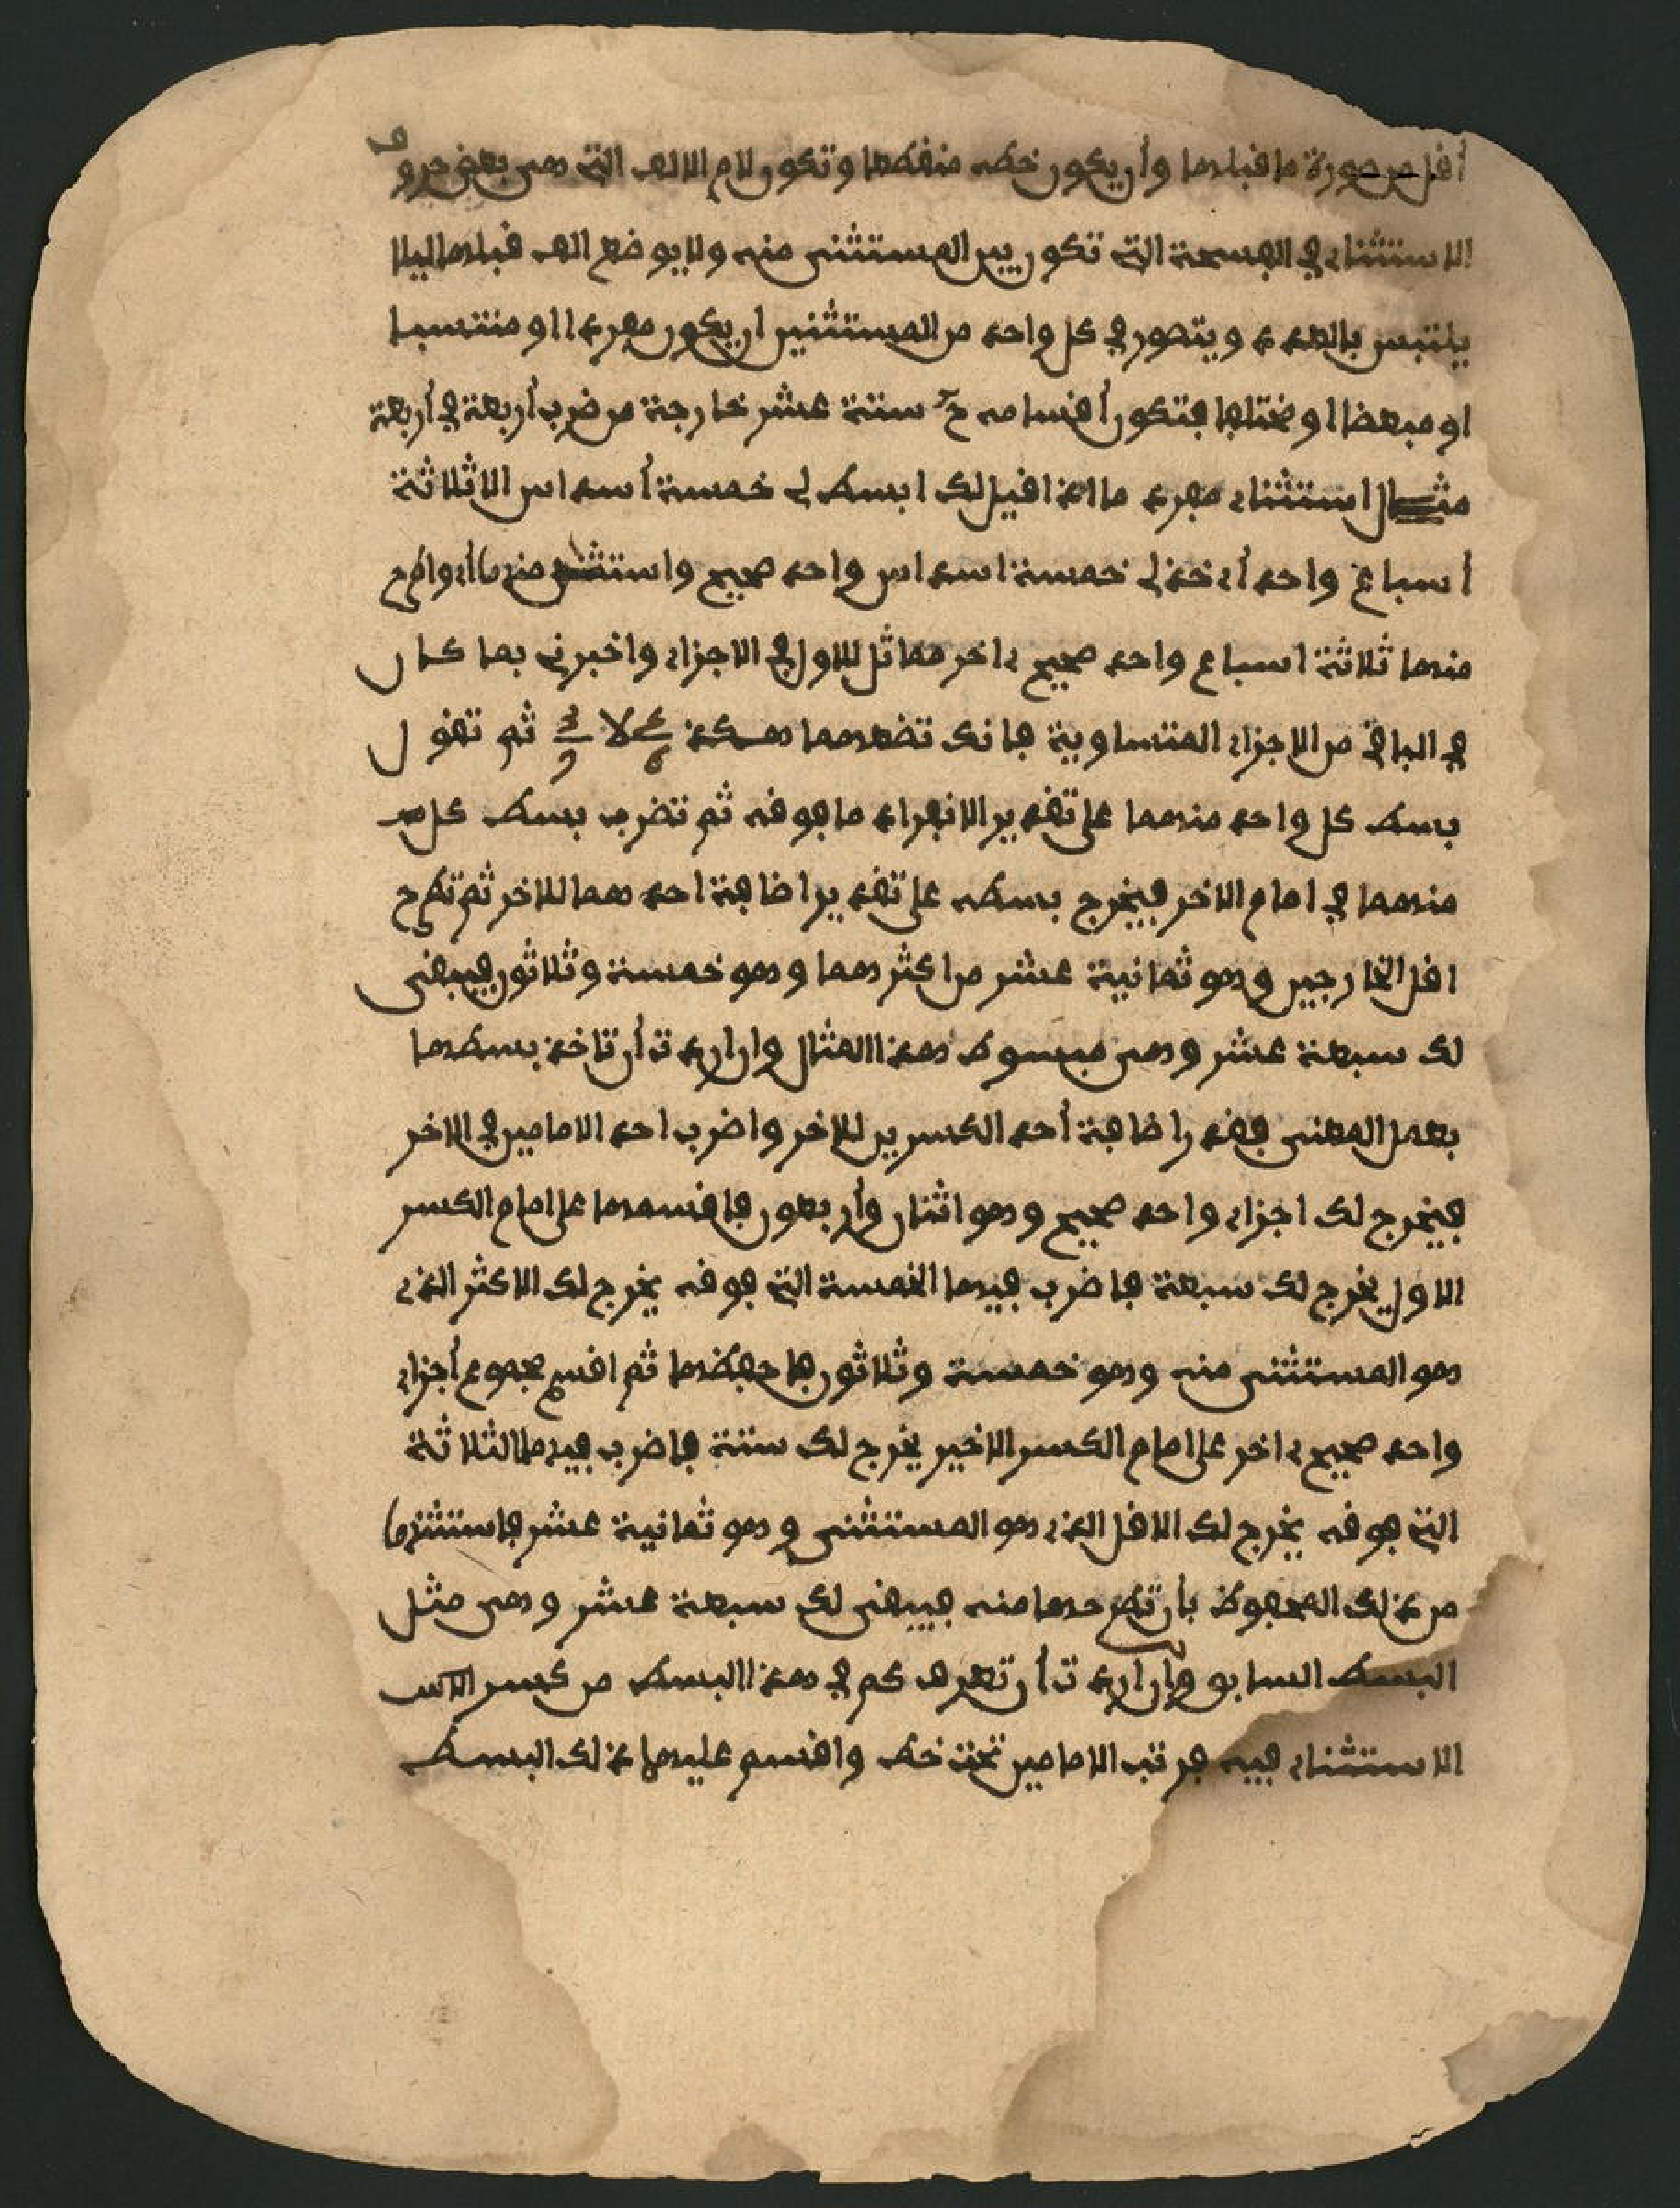 أقل من صورة ما قبلها وأن يكون خطه منقطعا وتكون لام الالف التى هى بعض حروف
الاستثناء في الفسحة التى تكون بين المستثنى منه ولا يوضع الف قبلها ليلا
يلتبس بالعدد ويتصور في كل واحد من المستثنيين ان يكون مفردا او منتسبا
او مبعضا او مختلفا فتكون أقسامه ح ستة عشر خارجة من ضرب أربعة في أربعة
مثال استثناء مفرد ما اذا قيل لك ابسط لى خمسة أسداس الا ثلاثة
أسباع واحد أى خذ لى خمسة اسداس واحد صحيح واستثن منها أى واطرح
منها ثلاثة اسباع واحد صحيح ءاخر مماثل للاول في الاجزاء واخبرنى بما كان
في الباقى من الاجزاء المتساوية فانك تضعهما هكذا ⁵⁄₆ لا ³⁄₇ ثم تقول
بسط كل واحد منهما على تقدير الانفراد ما فوقه ثم تضرب بسط كل
منهما في امام الاخر فيخرج بسطه على تقدير اضافة احدهما للاخر ثم تطرح
اقل الخارجين وهو ثمانية عشر من اكثرهما وهو خمسة وثلاثون فيبقى
لك سبعة عشر وهى مبسوط هذا المثال وان اردت أن تاخذ بسطها
بعمل المعنى فقدر اضافة أحد الكسرين للاخر واضرب احد الامامين في الاخر
فيخرج لك اجزاء واحد صحيح وهو اثنان وأربعون فاقسمها على امام الكسر
الاول يخرج لك سبعة فاضرب فيها الخمسة التى فوقه يخرج لك الاكثر الذى
هو المستثنى منه وهو خمسة وثلاثون فاحفظها ثم اقسم مجموع أجزاء
واحد صحيح ءاخر على امام الكسر الاخير يخرج لك ستة فاضرب فيها الثلاثة
التى فوقه يخرج لك الاقل الذى هو المستثنى وهو ثمانية عشر فاستثنها
من ذلك المحفوظ بأن تطرحها منه فيبقى لك سبعة عشر وهى مثل
البسط السابق وان اردت أن تعرف كم في هذا البسط من كسر
الاستثناء فيه فرتب الامامين تحت خط واقسم عليهما ذلك البسط